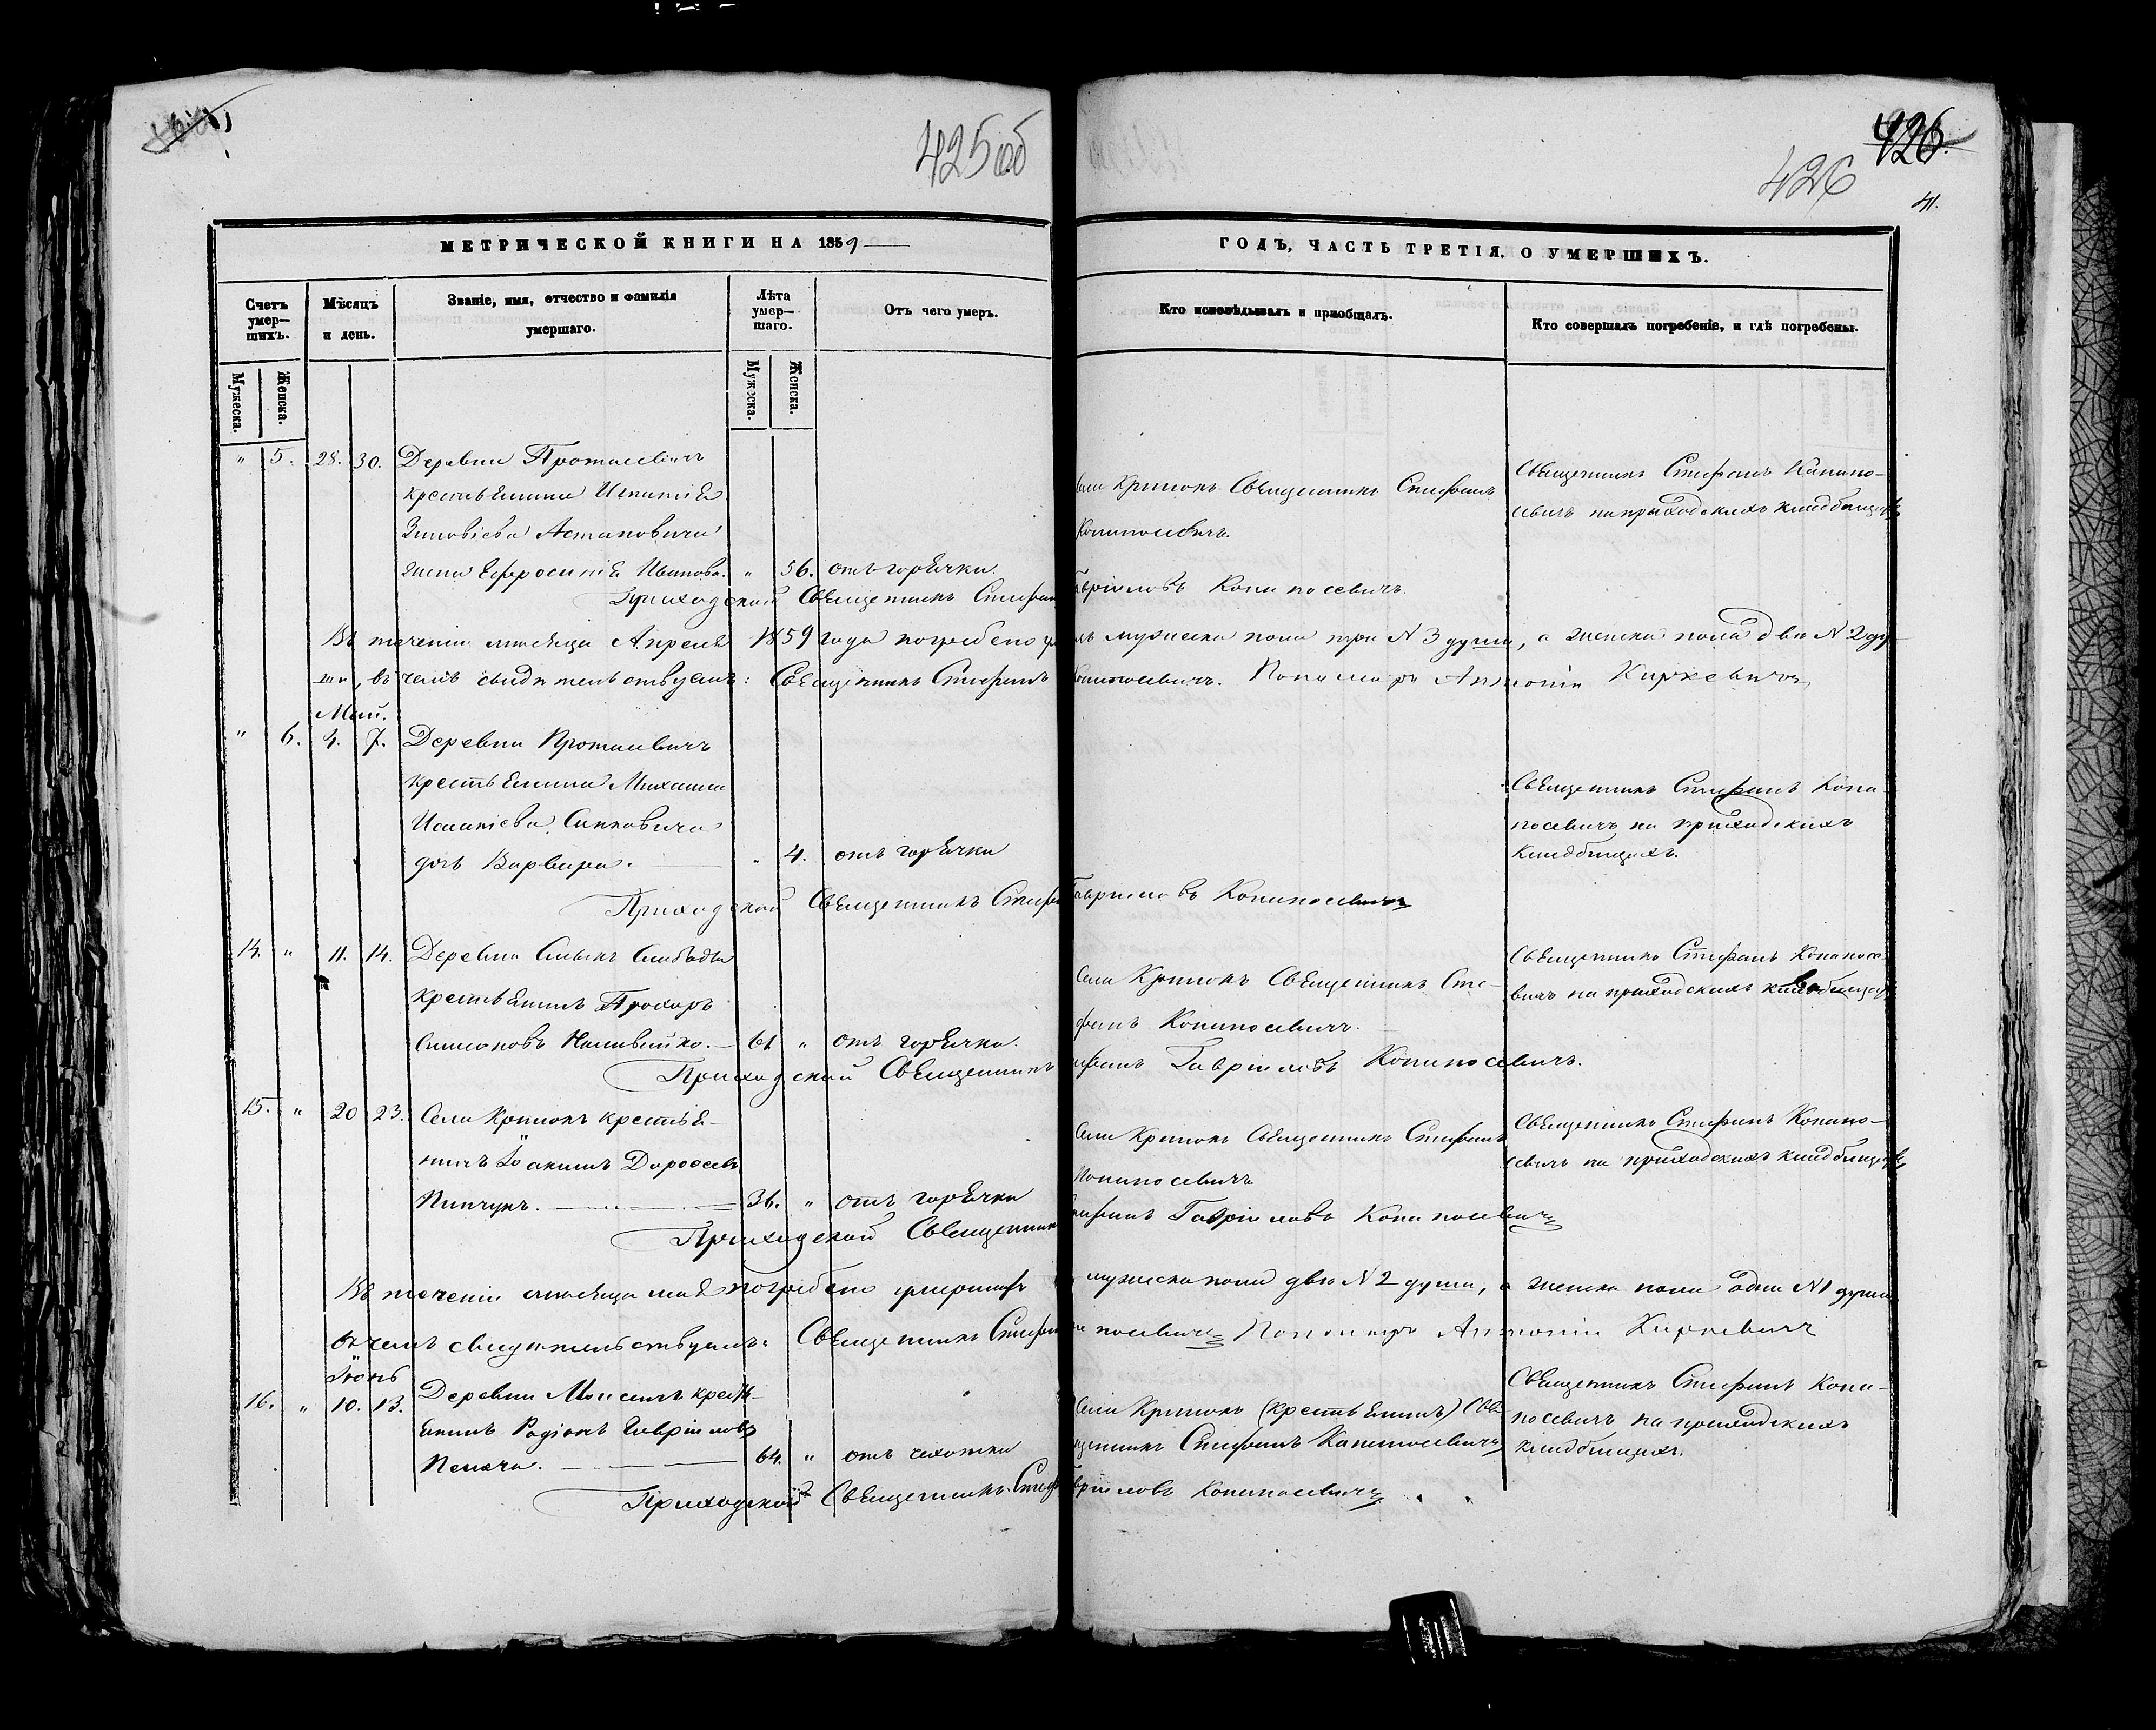 425 об
426.
426
41.
МЕТРИЧЕСКОЙ КНИГИ НА 1859
ГОДЪ, ЧАСТЬ ТРЕТІЯ, О УМЕРШИХЪ.
Счетъ умер—шихъ.
Мѣсяцъ и день.
Званіе, имя, отчество и фамилія умершаго.
Лѣта умер—шаго.
Отъ чего умеръ.
Кто исповѣдывалъ и пріобщалъ.
Кто совершалъ погребеніе, и гдѣ погребены.
Мужеска.
Женска.
Мужеска.
Женска.
" 5. 28. 30. Деревни Протасевичъ
крестьянина Игнатія
Зиновіева Астаповича
жена Ефросинія Иванова. " 56. отъ горячки.
Села Кривокъ Священникъ Стефанъ
Копиносевичъ.
Священникъ Стефанъ Копино-
севичъ на приходскихъ кладбищахъ
Приходской Священникъ Стефанъ Гавріиловъ Копиносевичъ.
Въ теченіи мѣсяца Апреля 1859 года погребено мужеска пола три N 3 души, а женска пола двѣ N 2 ду-
ши, въ чемъ свидѣтельствуемъ: Священникъ Стефанъ Копиносевичъ. Пономарь Антоній Киркевичъ
Май.
" 6. 4. 7. Деревни Протасевичъ
крестьянина Михаила
Игнатіева Синковича
дочь Варвара. " 4. отъ горячки
Священникъ Стефанъ Копи-
носевичъ на приходскихъ
кладбищахъ.
Приходской Священникъ Стефанъ Гавріиловъ Копиносевичъ
14. " 11. 14. Деревни Слободы
крестьянинъ Прохоръ
Симоновъ Наливайко. 61. " отъ горячки.
Священникъ Сте-
фанъ Копиносевичъ.
Священникъ Стефанъ Копиносе-
вичъ на приходскихъ кладбищахъ
Приходской Священникъ Стефанъ Гавріиловъ Копиносевичъ.
15. " 20 23. Села крестья-
нинъ Іоакимъ Дороѳеевъ
Пинчукъ. 36. " отъ горячки
Священникъ Стефанъ
Копиносевичъ
Священникъ Стефанъ Копино-
севичъ на приходскихъ кладбищахъ
Приходской Священникъ Стефанъ Гавріиловъ Копиносевичъ
Въ теченіи мѣсяца мая погребено умершихъ мужеска пола двѣ N 2 души, а женска пола одна N 1 душа
въ чемъ свидѣтельствуемъ: Священникъ Стефанъ Копиносевичъ Пономарь Антоній Киркевичъ
Іюнь
16. " 10. 13. Деревни кресть-
янинъ Родіонъ Гавріиловъ
64. " отъ чахотки
(крестьянинъ) Свя-
щенникъ Стефанъ Копиносевичъ
Священникъ Стефанъ Копи-
носевичъ на приходскихъ
кладбищахъ.
Приходской Священникъ Стефанъ Гавріиловъ Копиносевичъ